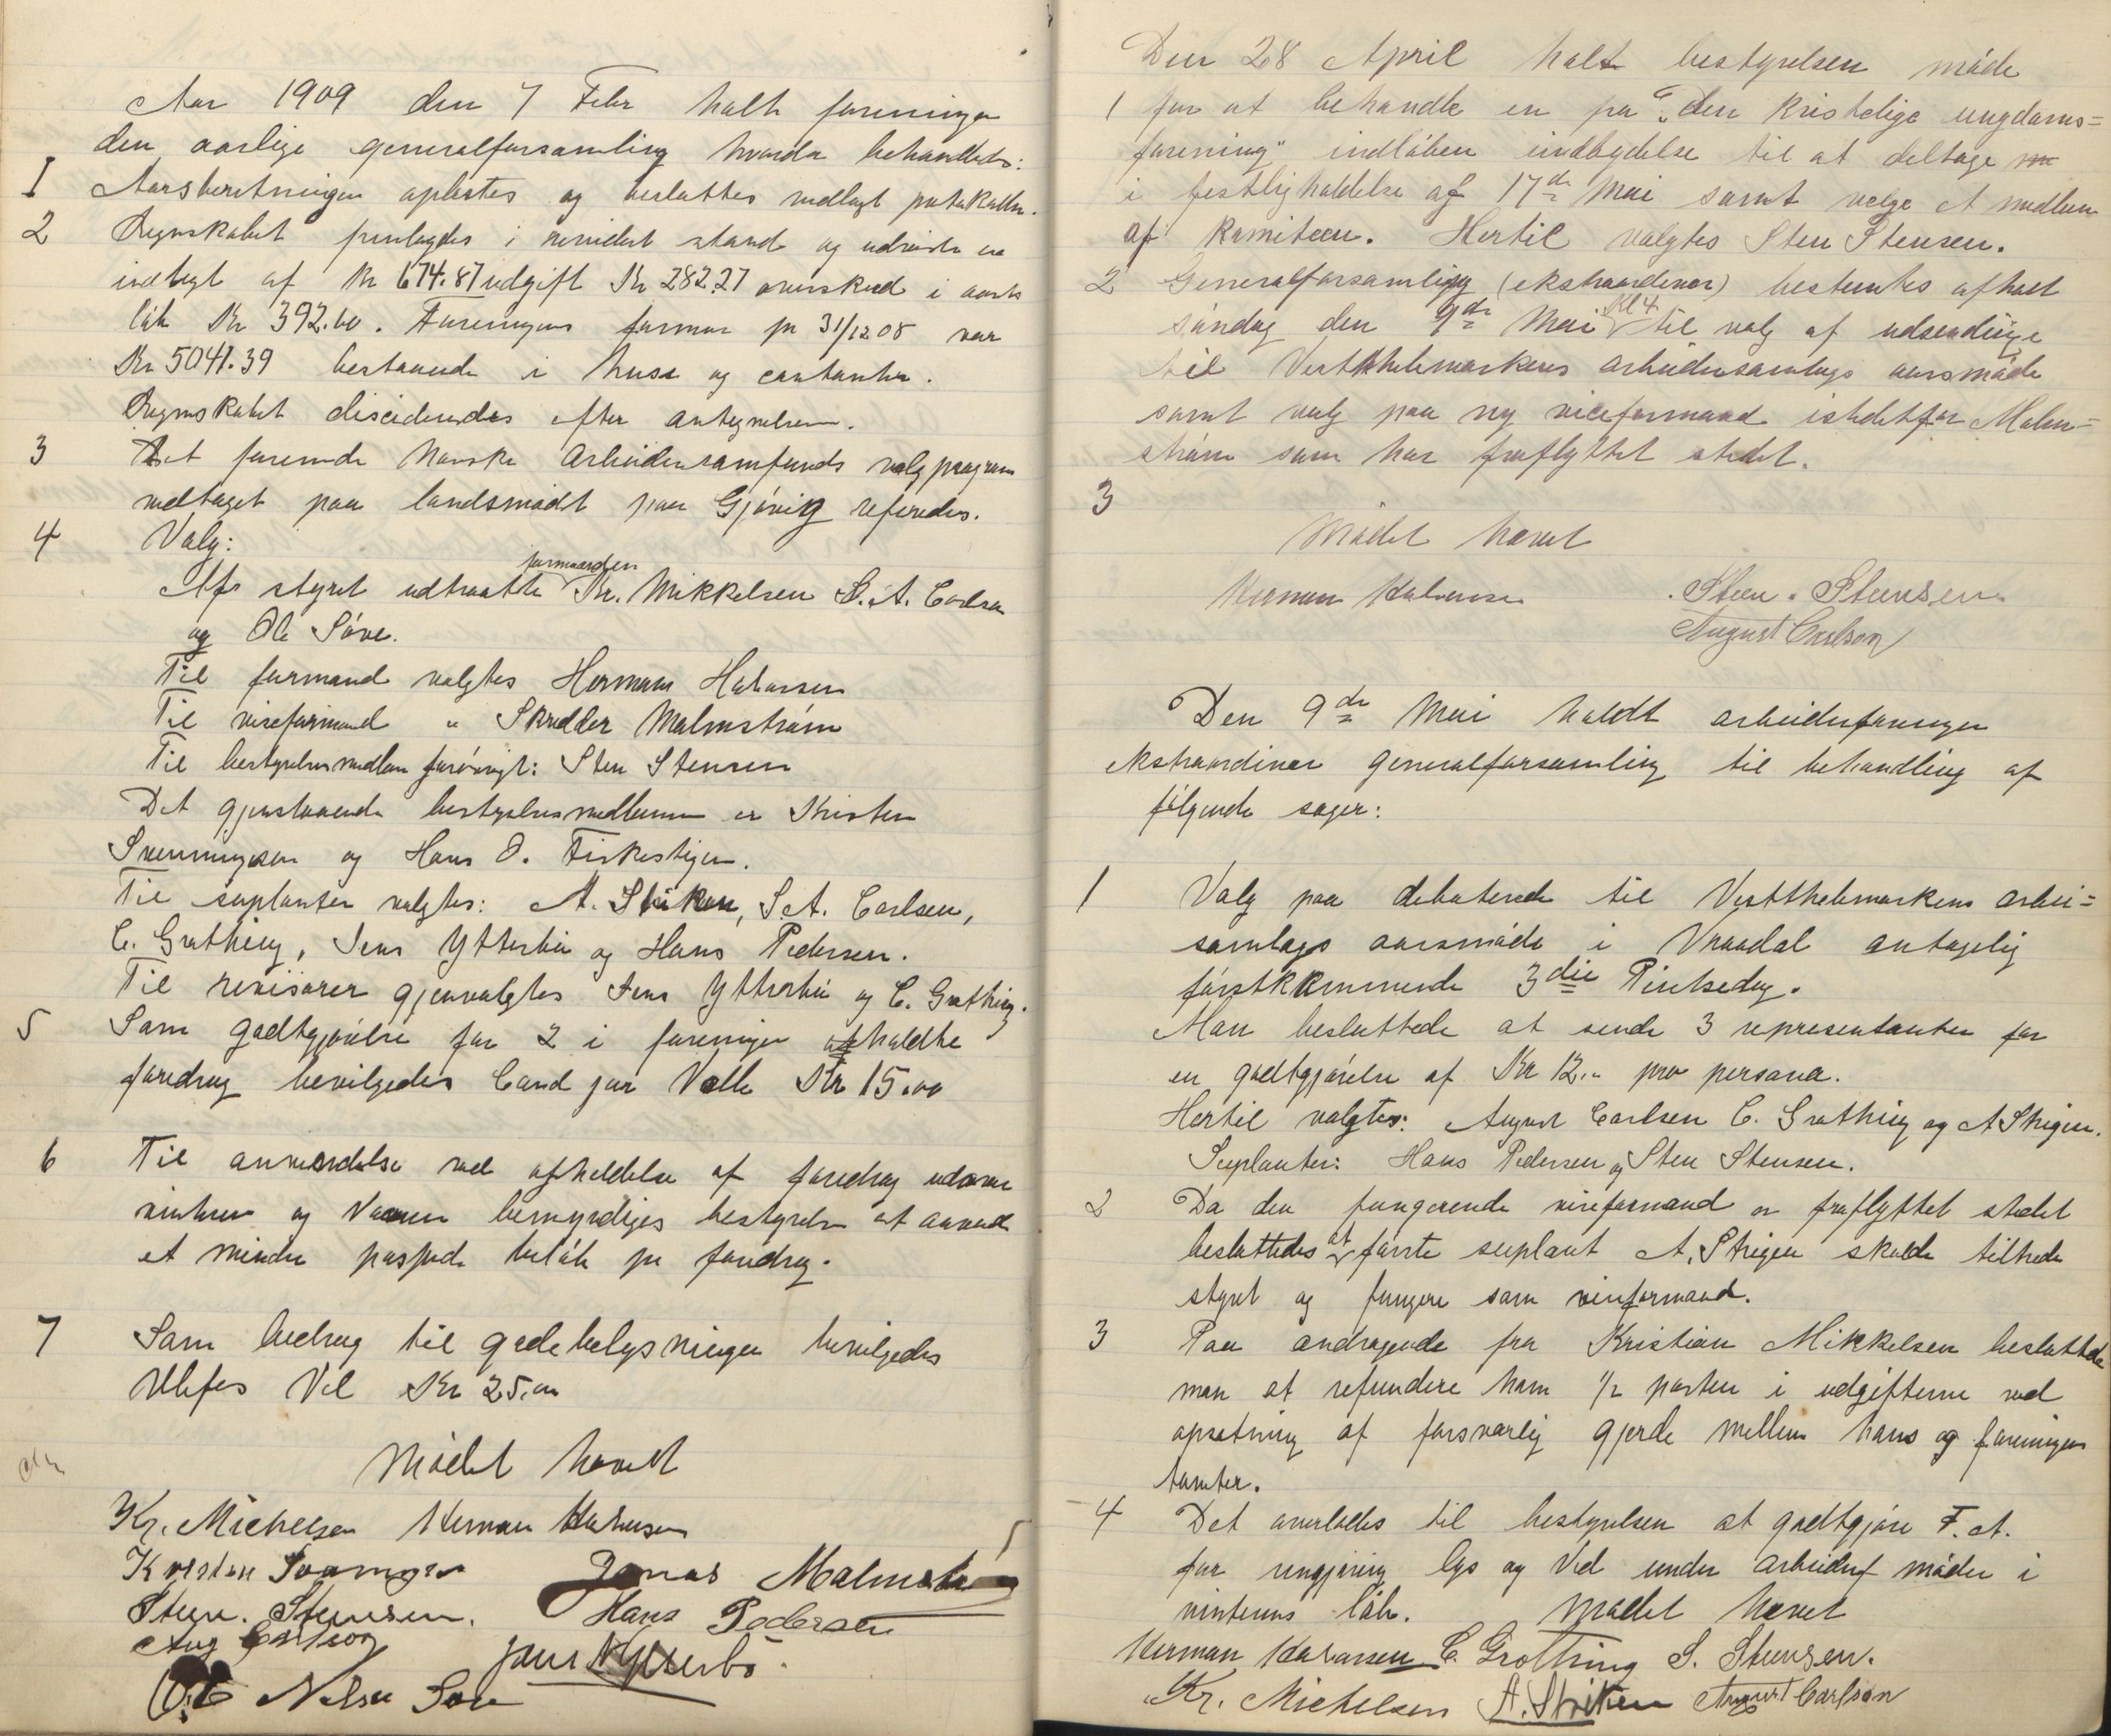 Aar 1909 den 7 Febr halt foreningen
den aarlige generalforsamling hvorda behandledes:
I Aarsberetningen oplæstes og besluttes vedlagt protokollen.
2 Regnskabet fremlagdes i revidert stand og udviste en
indtægt af Kr 674.87 udgift Kr 282.27 overskud i aarets
løb Kr 392.60. Foreningens formue pr 31/12 08 var
Kr 5041.39 bestaaende i huse og contanter.
Regnskabet desciderdes efter antegnelserne.
3 Det forenede norske arbeidersamfunds valgprogram
vedtaget paa landsmødet paa Gjøvig referedes.
4 Valg:
Af styret udtraatte formanden Kr. Mikkelsen S. A. Carlsen
og Ole Søve.
Til formand valgtes Herman Halvorsen
Til viseformand " Skrædder Malmstrøm
Til bestyrelsesmedlem forøvrigt: Sten Stensen
Det gjenstaaende bestyrelsesmedlemmer er Kristen
Svenningsen og Hans O. Fiskestigen.
Til suplanter valgtes: A. Striken, S. A. Carlsen,
C. Grøthing, Jens Ytterbø og Hans Pedersen.
Til revisorer gjenvalgtes Jens Ytterbø og C. Grøthing.
5 Som godtgjørelse for 2 i foreningen afholdte
foredrag bevilgedes Cand jur Valle Kr 15.00
6 Til anvendelse ved afholdelse af foredrag udover
vinteren og Vaaren bemyndiges bestyrelsen at anvende
et mindre passende beløb pr foredrag.
7 Som bidrag til gadebelysningen bevilgedes
Ulefos Vel Kr 25.00
Mødet hævet
Kr. Michelsen Herman Halvorsen
Kristen Svenningsen Jonas Malmstrøm
Steen. Steensen. Hans Pedersen
Aug Carlson Jens N Ytterbø.
Ole Nilsen Søve
Den 28 April halt bestyrelsen møde
1 for at behandle en fra "den kristelige ungdoms=
forening" indløben indbydelse til at deltage
i festligholdelse af 17de Mai samt vælge et medlem
af komiteen. Hertil valgtes Sten Stensen.
2 Generalforsamling (ekstraordinær) bestemtes afholt
søndag den 9de Mai Kl 4 til valg af udsendinge
til Vestthelemarkens arbeidersamlags aarsmøde
samt valg paa ny viceformand istedetfor Malm=
strøm som har fraflyttet stedet.
3
Mødet hævet
Herman Halvorsen Steen. Steensen.
August Carlson
Den 9de Mai holdt arbeiderforeningen
ekstraordinær generalforsamling til behandling af
følgende sager:
1 Valg paa debaterede til Vestthelemarkens arbei=
samlags aarsmøde i Vraadal antagelig
førstkommende 3die Pintsedag.
Man besluttede at sende 3 representanter for
en godtgjørelse af Kr 12.- pro persona.
Hertil valgtes: August Carlsen C. Grøthing og A Strigen.
Suplanter: Hans Pedersen og Sten Stensen.
2 Da den fungerende viseformand er fraflyttet stedet
besluttedes at første suplant A. Strigen skulde tiltræde
styret og fungere som viseformand.
3 Paa andragende fra Kristian Mikkelsen besluttede
man at refundere ham 1/2 parten i udgifterne ved
opsætning af forsvarlig gjerde mellem hans og foreningens
tomter.
4 Det overlodes til bestyrelsen at godtgjøre F. A.
for rengjøring lys og Ved under arbeiderf møder i
vinterens løb. Mødet hævet
Herman Halvorsen C. Grøthing S. Steensen.
Kr. Michelsen A. Striken August Carlson